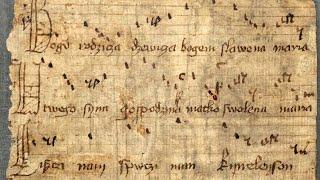 Bogu rodzica dzewica bogem slawena maria
U twego syna gospodzina matko swolena maria
Siszczi nam spwczi nam Kyrieleyson